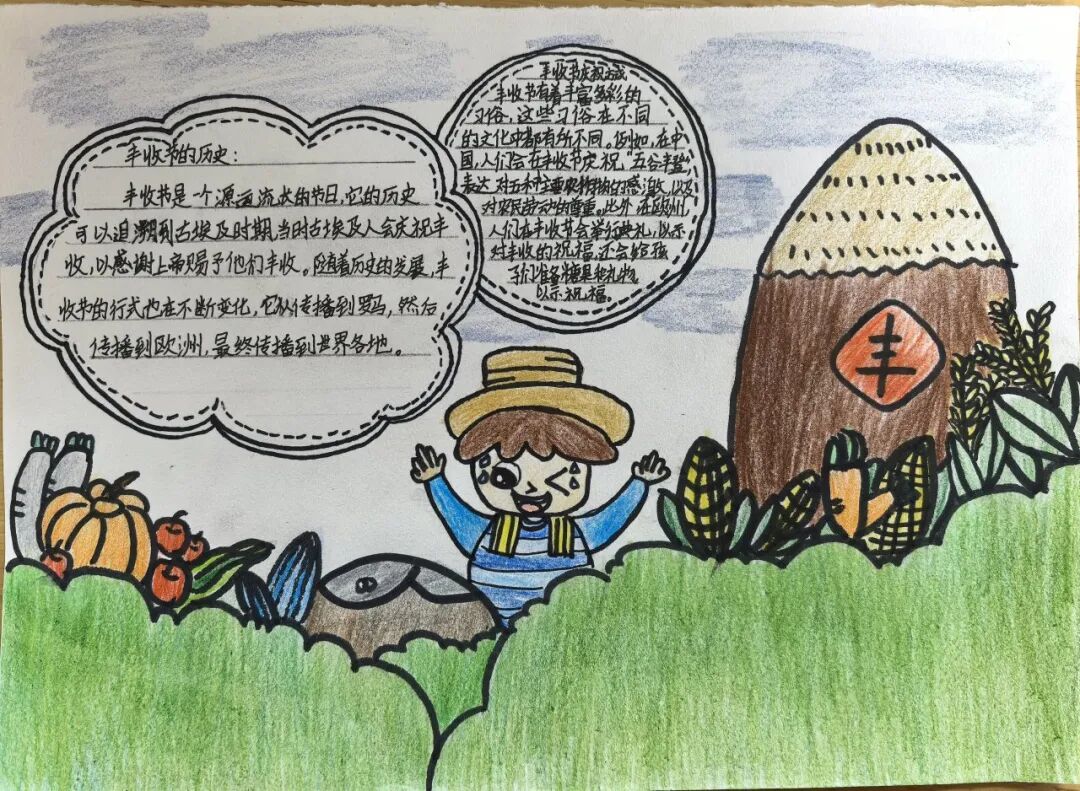 丰收节的历史:
丰收节是一个源远流长的节日,它的历史
可以追溯到古埃及时期,当时古埃及人会庆祝丰
收,以感谢上帝赐予他们丰收。随着历史的发展,丰
收节的行式也在不断变化,它从传播到罗马,然后
传播到欧洲,最终传播到世界各地。
丰收节庆祝方式
丰收节有着丰富多彩的
习俗,这些习俗在不同
的文化中都有所不同。例如,在中
国,人们会在丰收节庆祝"五谷丰登"
表达对五种主要农作物的感激,以及
对农民劳动的尊重。此外,在欧洲,
人们在丰收节会举行典礼,以示
对丰收的祝福,还会给孩
子们准备糖果和礼物,
以示祝福。
丰